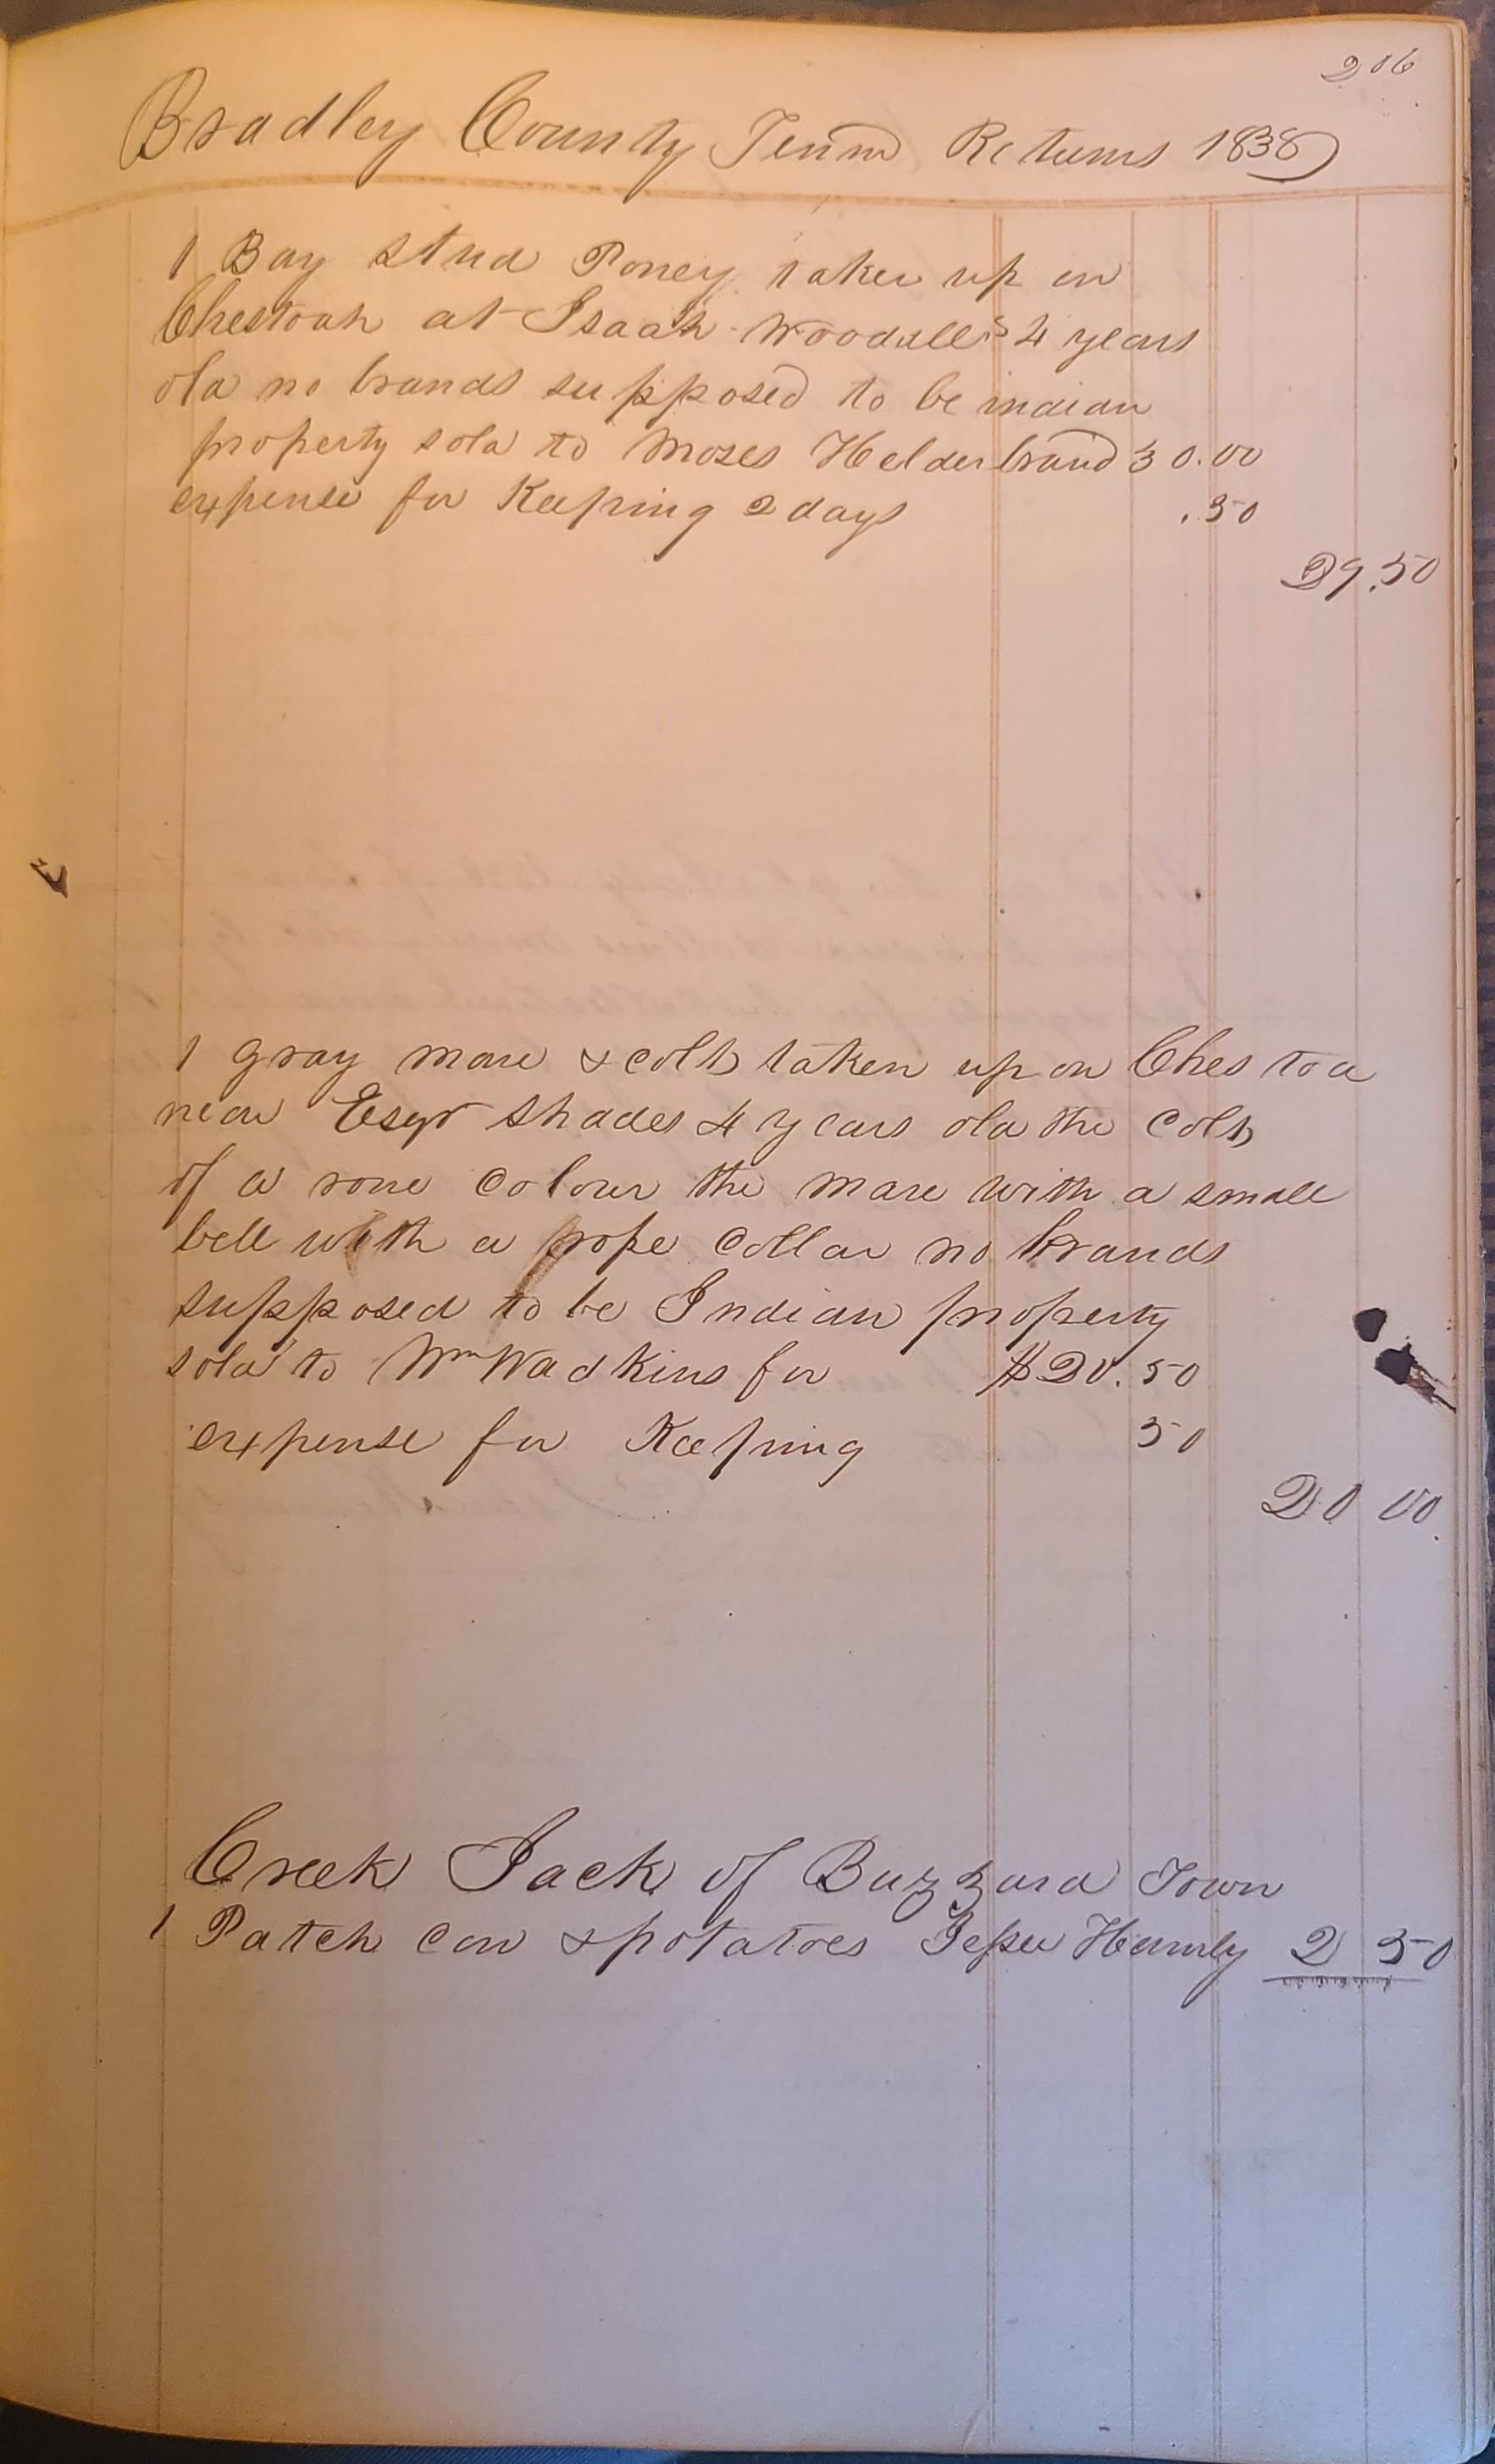 206
Bradley County Tenn Returns 1838
1 Bay Stud Poney taken up on
Chestoah at Isaah Woodalls 4 years
old no brands supposed to be indian
property sold to Moses Helderbrand 30.00
expense for Keeping 2 days .50
29.50
1 gray mare & colt taken up on Chestoa
near Esqr Shades 4 years old the colt
of a rone colour the mare with a small
bell with a rope collar no brands
supposed to be Indian property
sold to Wm Wadkins for $20.50
expense for Keeping 50
20 00
Creek Jack of Buzzard Town
1 Patch corn & potatoes Jesse 2 50